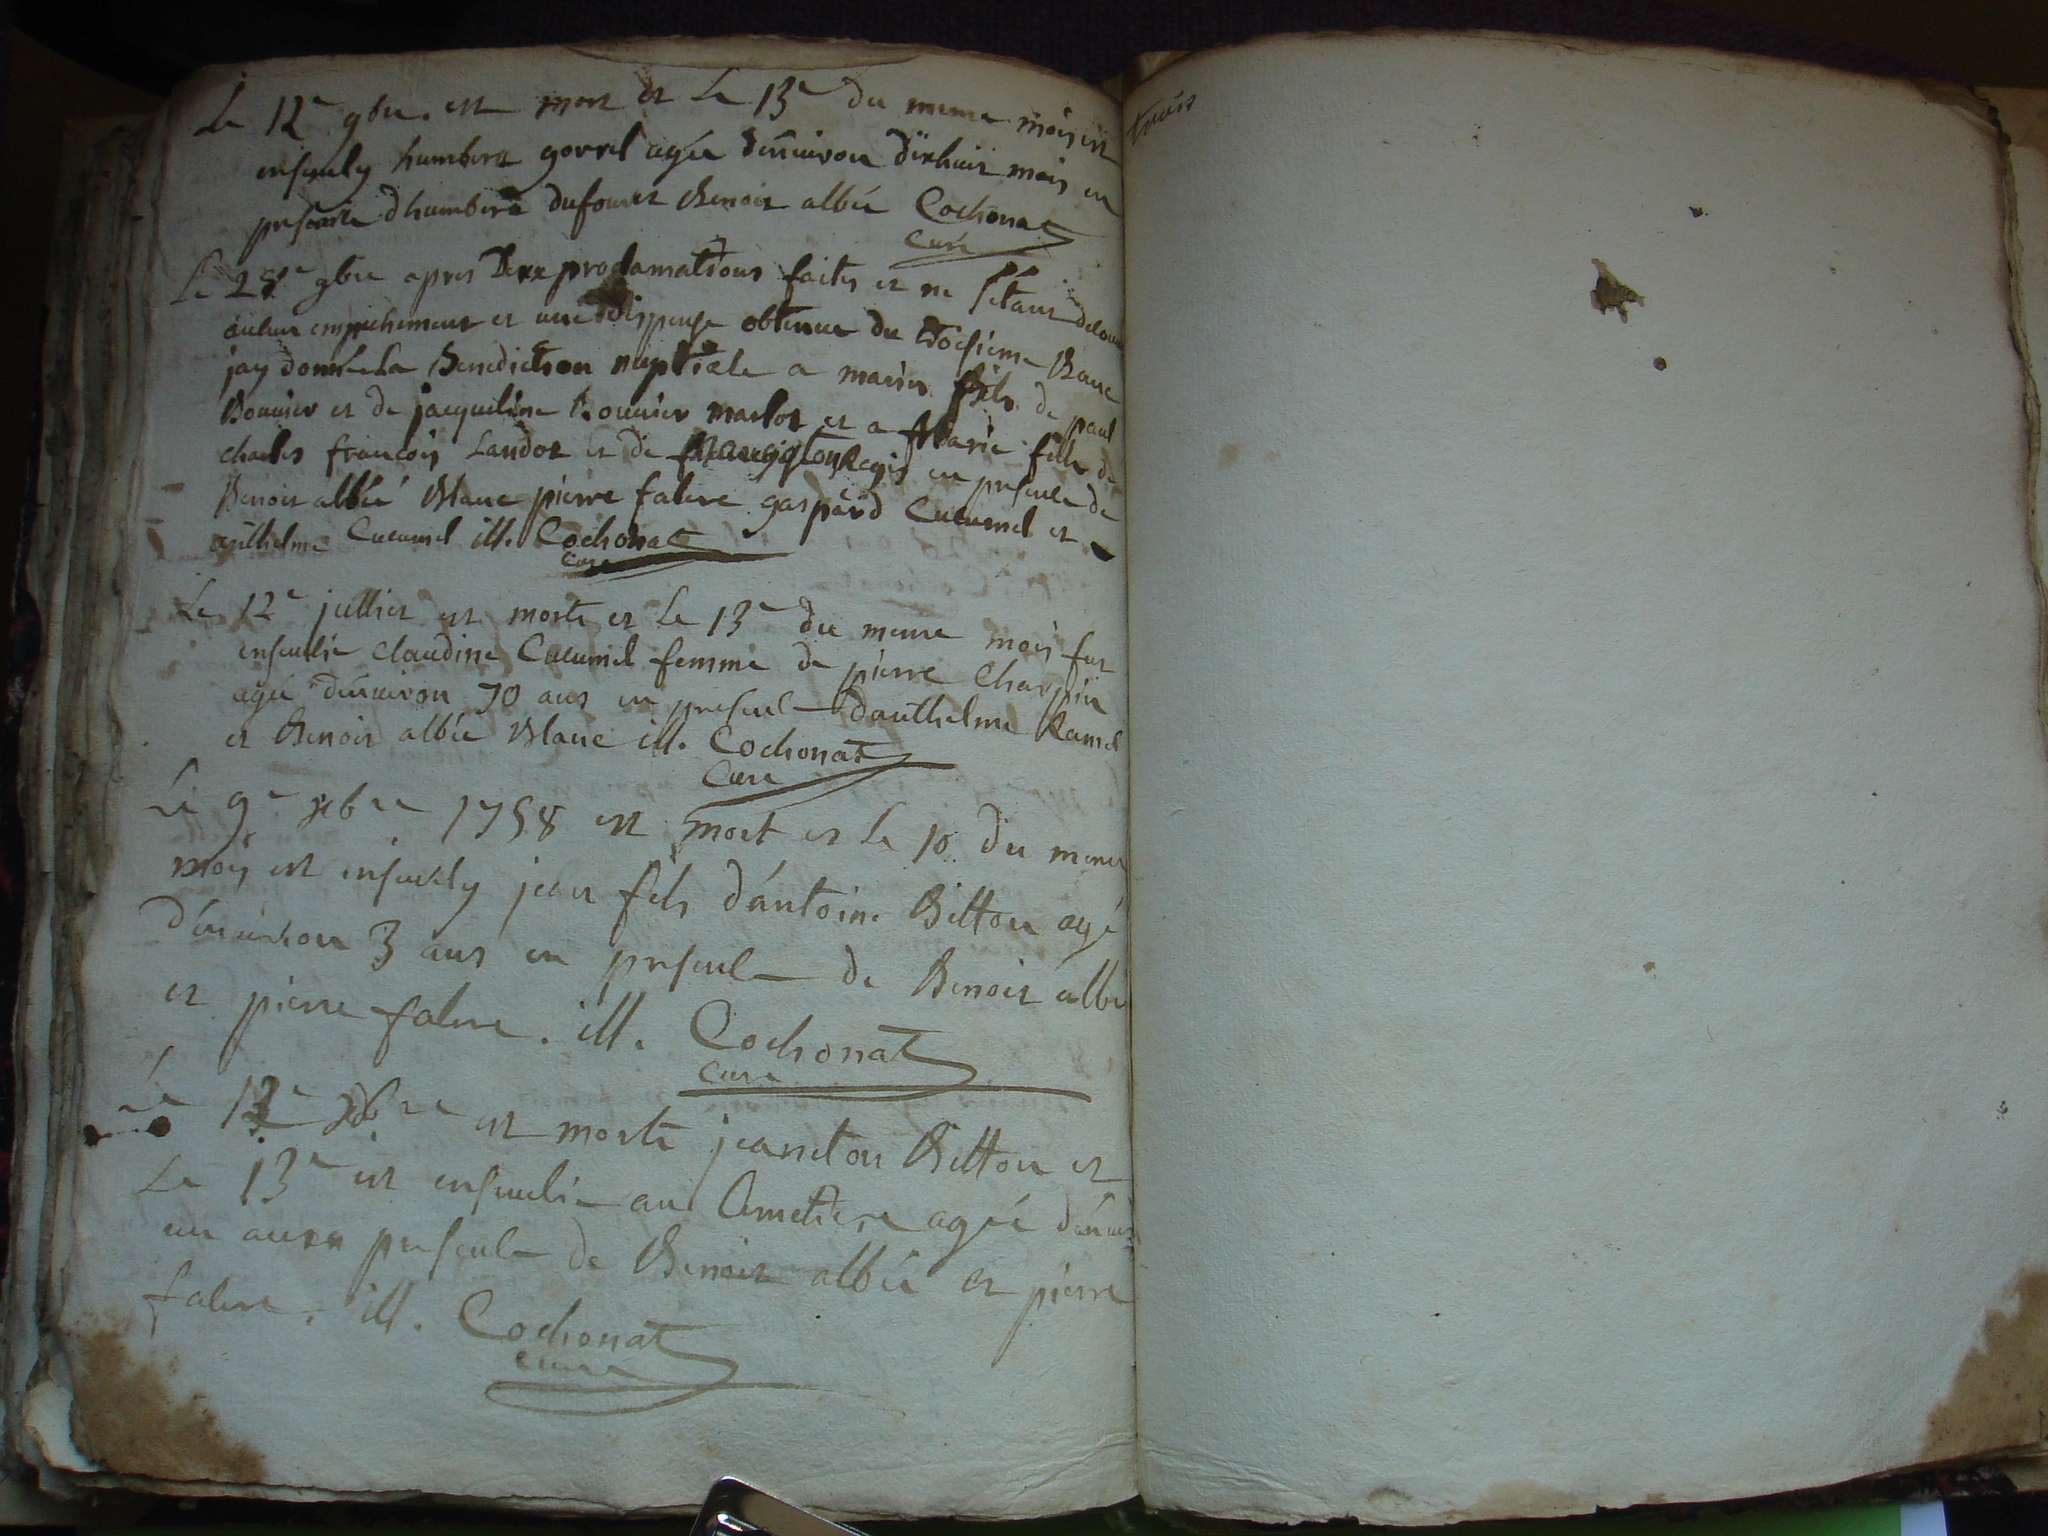 Le 12e 9bre. est mort et Le 13e du meme mois est
ensevely humbert gorrel agée d'environ dixhuit mois en
presence dhumbert dufour et Benoit albée Cochonat
Curé
Le 28e 9bre apres Deux proclamations faites et ne s'étant
aucun empechement et une dispense obtenue du troisieme Banc
jay donné La Benediction nuptiale a fils de paul
Bouvier et de jacqueline Bouvier marlot et a Marie fille de
charles françois Landot et de en presence de
Benoit albée Blanc pierre fabre gaspard Cucumel et
Cucumel ill. Cochonat
Curé
Le 12e jullier est morte et Le 13e du meme mois fut
ensevelie claudine Cucumel femme de pierre Charpin
agée d'environ 70 ans en presence danthelme Ramel
et Benoit albée Blanc ill. Cochonat
Curé
Le 9e xbre 1758 est mort et le 10. du meme
mois est ensevely jean fils d'antoine Bitton agé
d'environ 3 ans en presence de Benoit albée
et pierre fabre. ill. Cochonat
Curé
Le 12e xbre est morte jeaneton Bitton et
Le 13e est ensevelie au Cimetiere agée
un an en presence de Benoit albée et pierre
fabre. ill. Cochonat
Curé